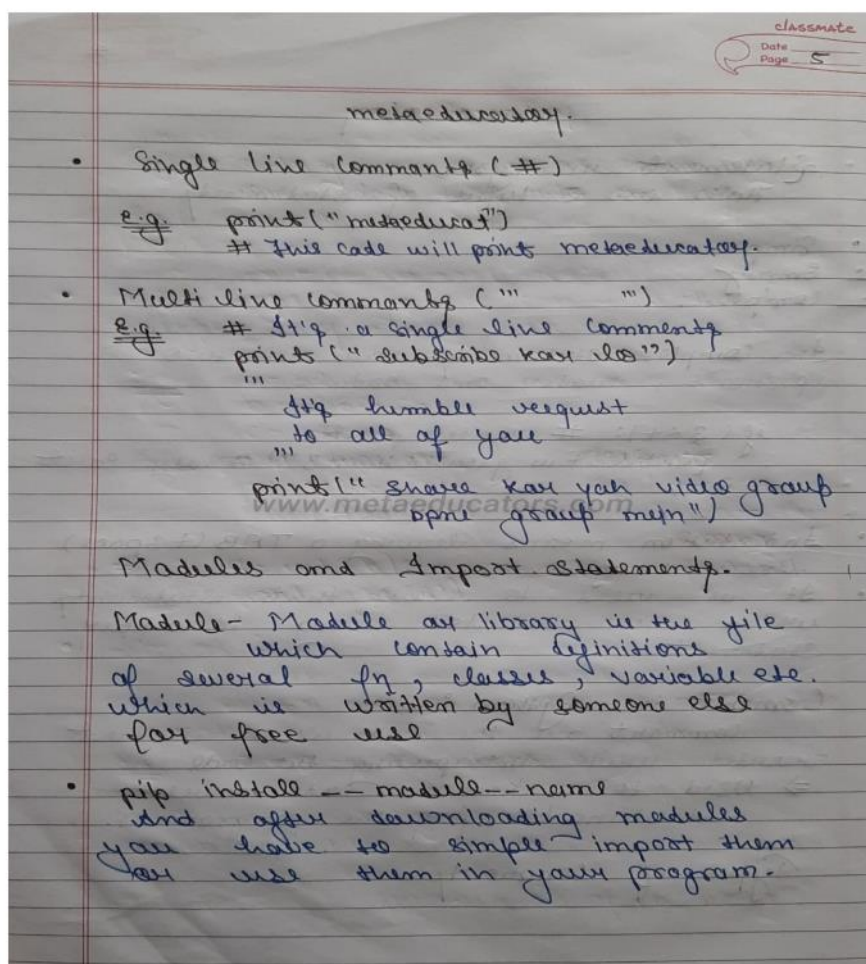 classmate
Date
Page 5
metaeducatory.
• Single line commants (#)
e.g. print("metaeducat")
# This code will print metaeducatory.
• Multi line commants (''' ''')
e.g. # It's a single line comments
print ("subscribe kar lo")
'''
It's humble request
to all of you
'''
print(" share kar yah video group
apne group mein")
www.metaeducators.com
Madules and Import statements.
Madule - Madule or library is the file
which contain definitions
of several fn, classes, variable etc.
which is written by someone else
for free use
• pip install -- madule -- name
And after downloading madules
you have to simple import them
or use them in your program.